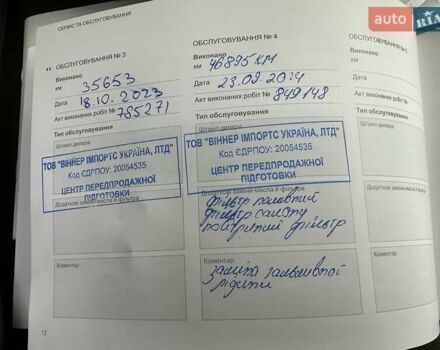 СЕРВІС ТА ОБСЛУГОВУВАННЯ
ОБСЛУГОВУВАННЯ № 3
Виконано
км 35653
Дата 18.10.2023
Акт виконаних робіт № 785271
Тип обслуговування
Штамп дилера
ТОВ "ВІННЕР ІМПОРТС УКРАЇНА, ЛТД"
Код ЄДРПОУ: 20054535
ЦЕНТР ПЕРЕДПРОДАЖНОЇ
ПІДГОТОВКИ
Додаткові заміни масла й фільтра
Коментар
12
ОБСЛУГОВУВАННЯ № 4
Виконано
км 46895 КМ
Дата 23.09.2024
Акт виконаних робіт № 849148
Тип обслуговування
Штамп дилера
ТОВ "ВІННЕР ІМПОРТС УКРАЇНА, ЛТД"
Код ЄДРПОУ: 20054535
ЦЕНТР ПЕРЕДПРОДАЖНОЇ
ПІДГОТОВКИ
фільтр паливний
фільтр салону
повітряний фільтр
Коментар
заміна гальмівної
рідини
ОБСЛУГОВУВАННЯ № 5
Виконано
км
Дата
Акт виконаних
Тип обслуговування
Штамп дилера
Додаткові заміни
Коментар
RIA